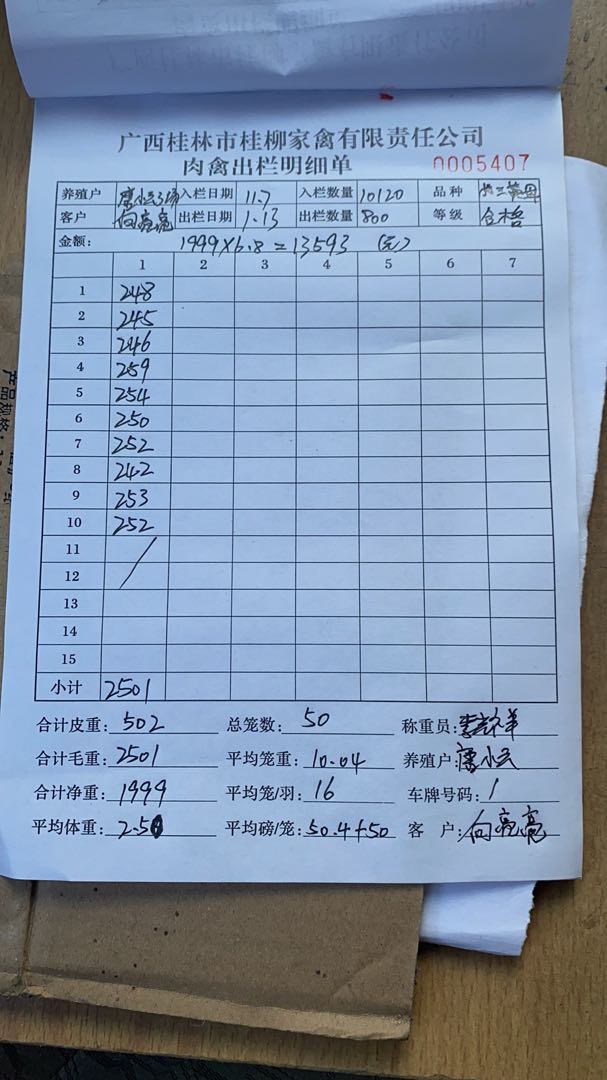 广西桂林市桂柳家禽有限责任公司
肉禽出栏明细单 0005407
养殖户 唐小云3场 入栏日期 11.7 入栏数量 10120 品种
客户 向亮亮 出栏日期 1.13 出栏数量 800 等级 合格
金额： 1999×6.8=13593 (元)
1 2 3 4 5 6 7
1 248
2 245
3 246
4 259
5 254
6 250
7 252
8 242
9 253
10 252
11
12
13
14
15
小计 2501
合计皮重：502 总笼数：50 称重员：
合计毛重：2501 平均笼重：10.04 养殖户：唐小云
合计净重：1999 平均笼/羽：16 车牌号码：1
平均体重：2.50 平均磅/笼：50.4+50 客 户：向亮亮